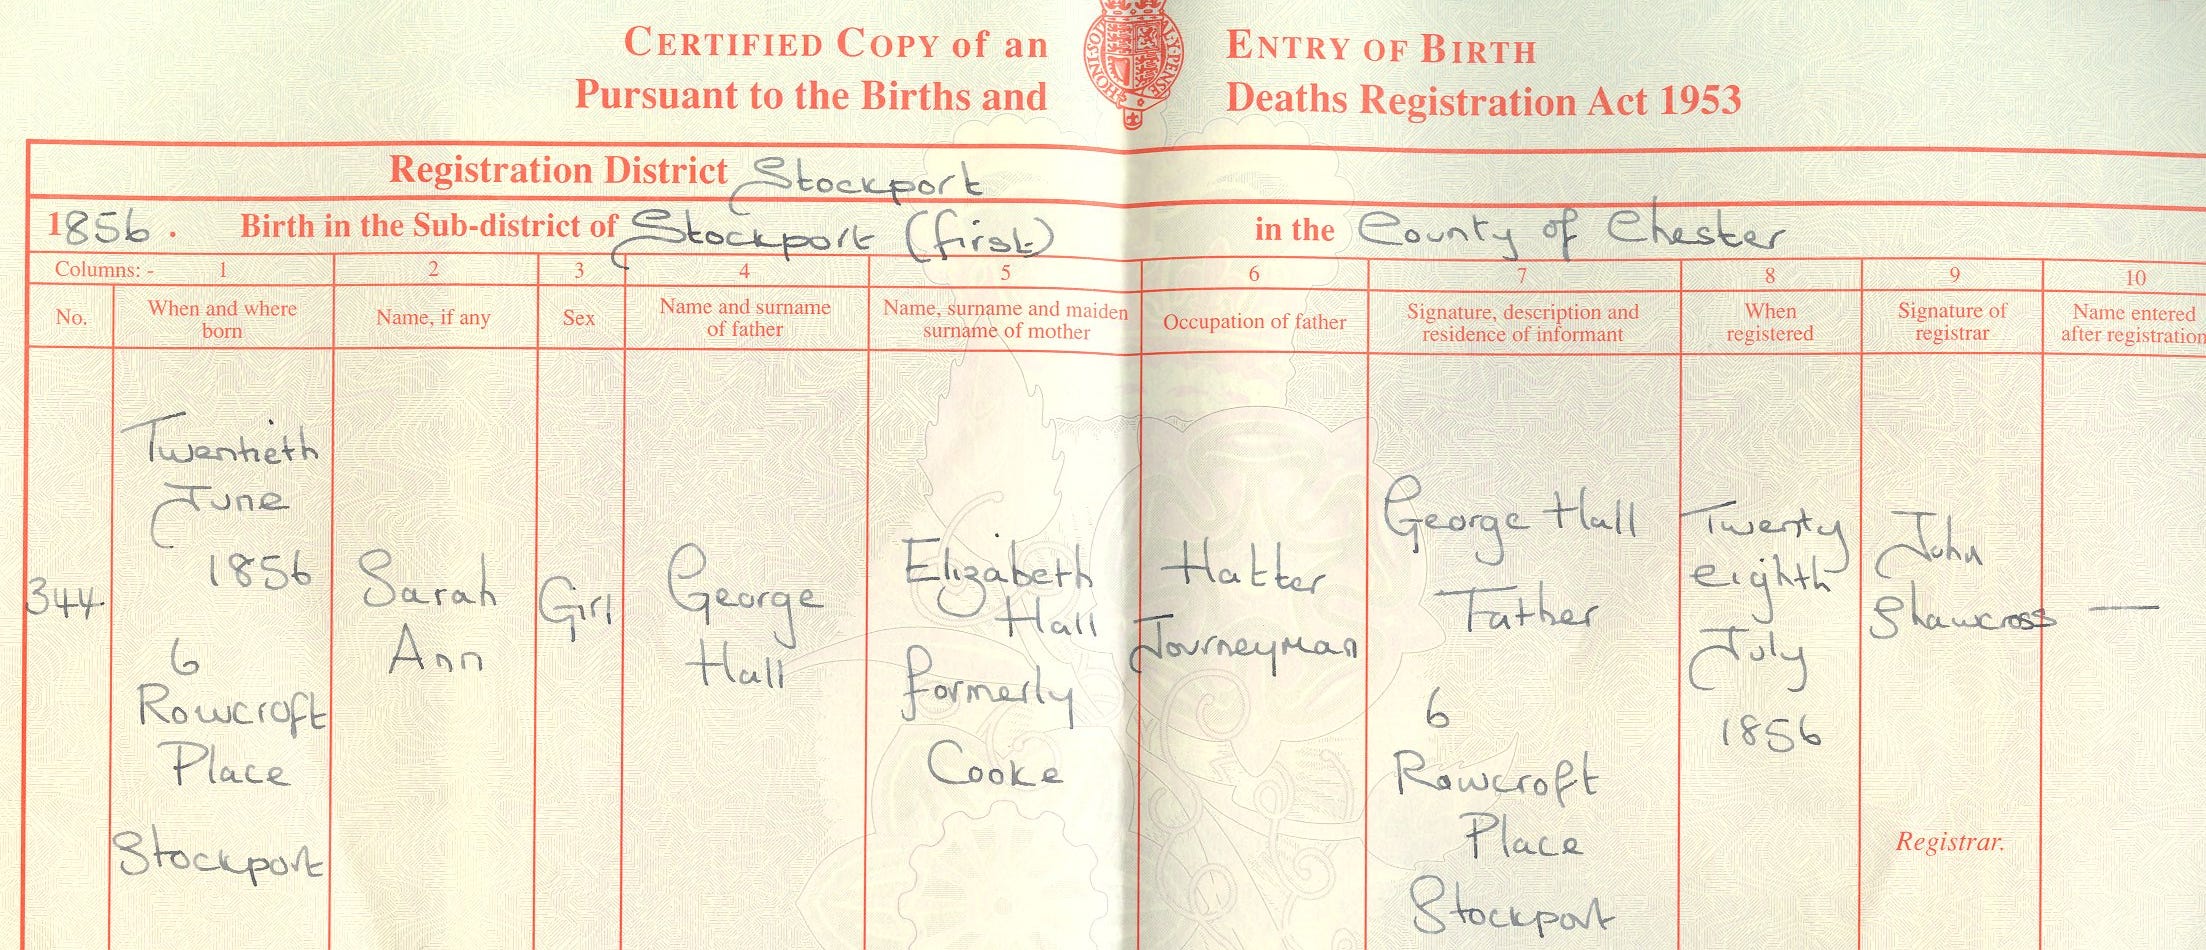 CERTIFIED COPY of an ENTRY OF BIRTH
Pursuant to the Births and Deaths Registration Act 1953
HONI·SOIT
MAL·Y·PENSE
Registration District Stockport
1856. Birth in the Sub-district of Stockport (first) in the County of Chester
Columns: - 1 2 3 4 5 6 7 8 9 10
No.
When and where
born
Name, if any
Sex
Name and surname
of father
Name, surname and maiden
surname of mother
Occupation of father
Signature, description and
residence of informant
When
registered
Signature of
registrar
Name entered
after registration
344
Twentieth
June
1856
6
Rowcroft
Place
Stockport
Sarah
Ann
Girl
George
Hall
Elizabeth
Hall
formerly
Cooke
Hatter
Journeyman
George Hall
Father
6
Rowcroft
Place
Stockport
Twenty
eighth
July
1856
John
Shawcross
Registrar.
—